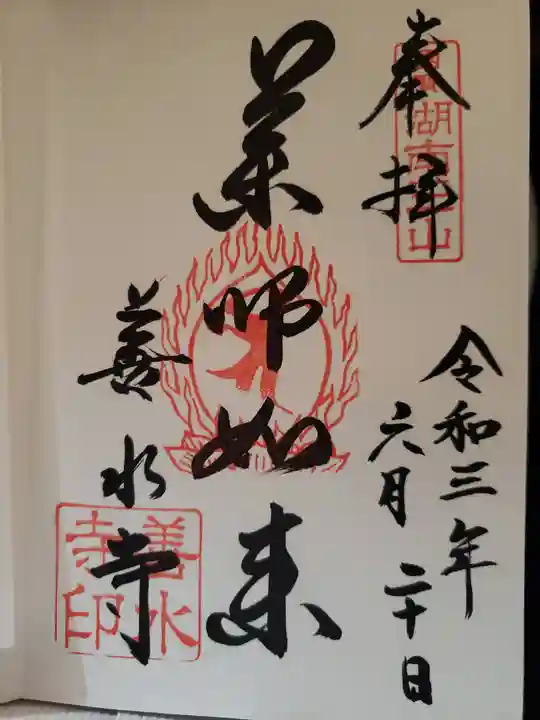 奉拝
湖南
令和三年
六月二十日
薬師如来
善水寺
善水
寺印